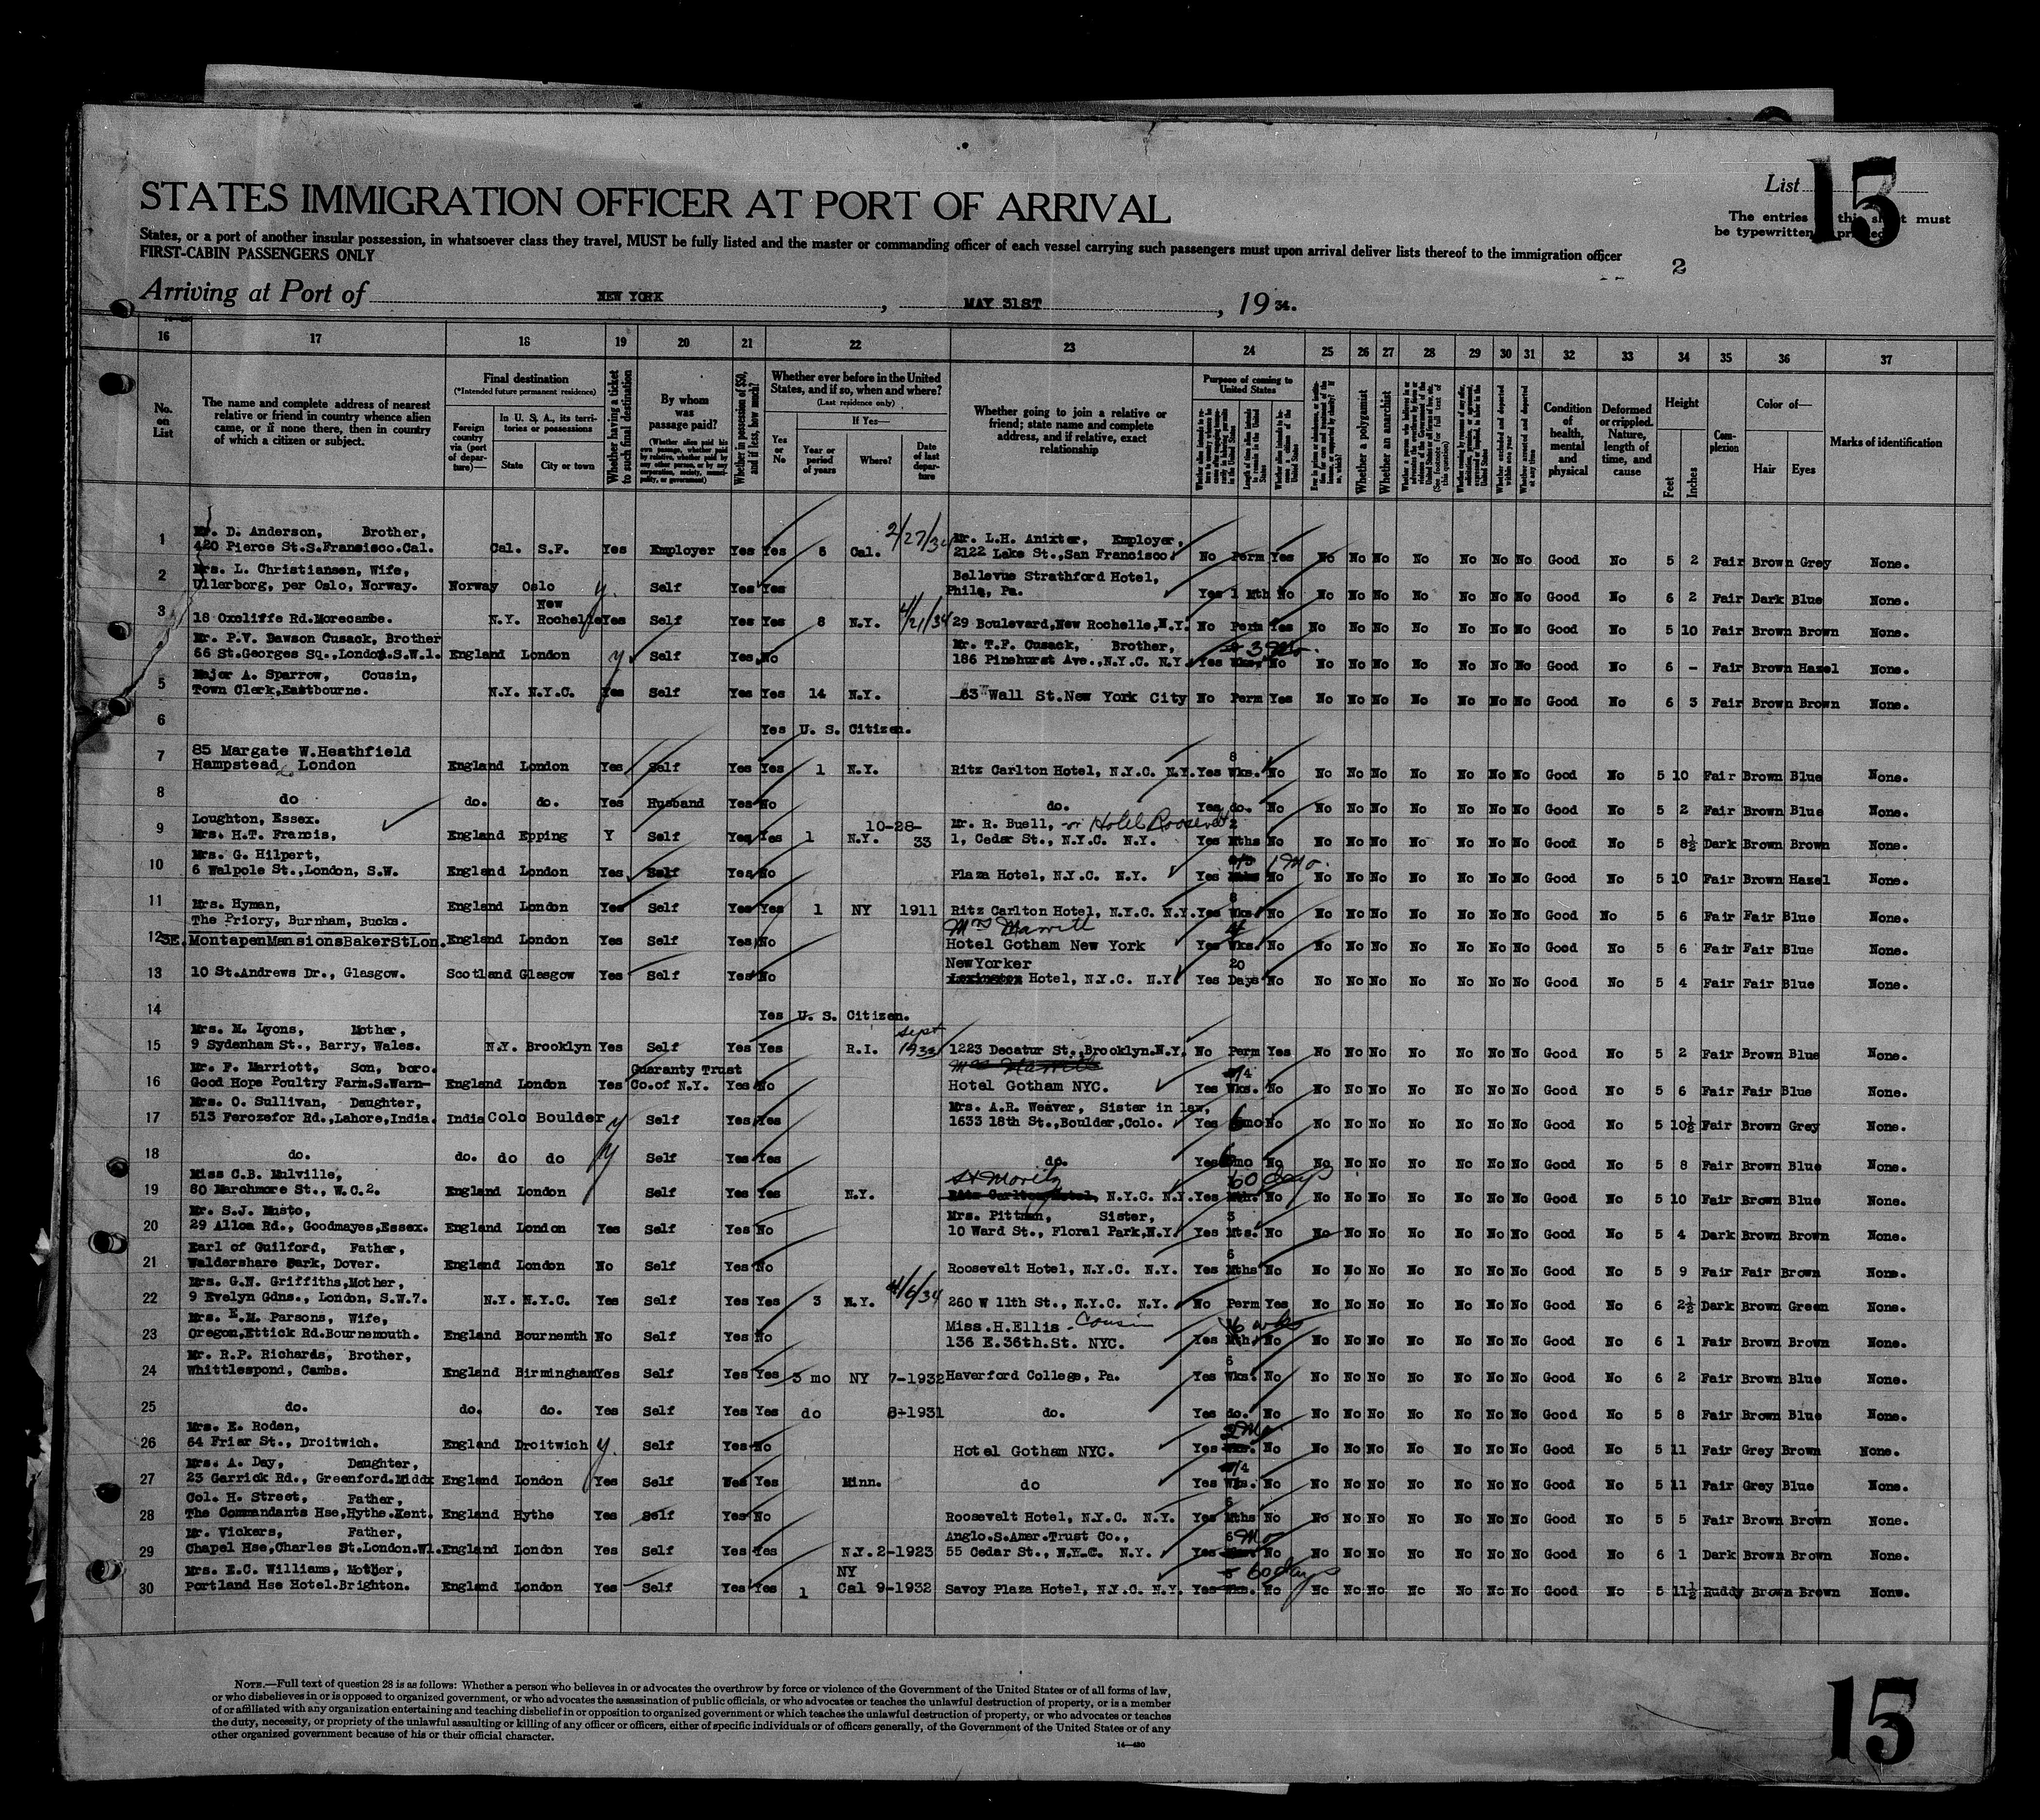 List 15
STATES IMMIGRATION OFFICER AT PORT OF ARRIVAL
The entries this sheet must
be typewritten
States, or a port of another insular possession, in whatsoever class they travel, MUST be fully listed and the master or commanding officer of each vessel carrying such passengers must upon arrival deliver lists thereof to the immigration officer
FIRST-CABIN PASSENGERS ONLY
2
Arriving at Port of NEW YORK, MAY 31ST, 1934.
16 17 18 19 20 21 22 23 24 25 26 27 28 29 30 31 32 33 34 35 36 37
No. on List
The name and complete address of nearest relative or friend in country whence alien came, or if none there, then in country of which a citizen or subject.
Final destination
(*Intended future permanent residence)
Foreign country via (port of departure)—
In U. S. A., its territories or possessions
State
City or town
Whether having a ticket to such final destination
By whom was passage paid?
(Whether alien paid his own passage, whether paid by relative, whether paid by any other person, or by any corporation, society, municipality, or government)
Whether in possession of $50, and if less, how much?
Whether ever before in the United States, and if so, when and where?
(Last residence only)
Yes or No
If Yes—
Year or period of years
Where?
Date of last departure
Whether going to join a relative or friend; state name and complete address, and if relative, exact relationship
Purpose of coming to United States
Whether a polygamist
Whether an anarchist
Condition of health, mental and physical
Deformed or crippled. Nature, length of time, and cause
Height
Feet
Inches
Complexion
Color of—
Hair
Eyes
Marks of identification
1 Mr. D. Anderson, Brother, 2/27/34 Mr. L.H. Anixter, Employer,
420 Pierce St.S.Fransisco.Cal. Cal. S.F. Yes Employer Yes Yes 5 Cal. 2122 Lake St.,San Francisco. No Perm Yes No No No No No No No Good No 5 2 Fair Brown Grey None.
2 Mrs. L. Christiansen, Wife, Bellevue Strathford Hotel,
Ullerborg, per Oslo, Norway. Norway Oslo y. Self Yes Yes Phila, Pa. Yes 1 Mth No No No No No No No No Good No 6 2 Fair Dark Blue None.
3 New 4/21/34
18 Oxcliffe Rd.Morecambe. N.Y. Rochelle Yes Self Yes Yes 8 N.Y. 29 Boulevard,New Rochelle,N.Y. No Perm Yes No No No No No No No Good No 5 10 Fair Brown Brown None.
Mr. P.V. Dawson Cusack, Brother Mr. T.F. Cusack, Brother, 3 Mo.
66 St.Georges Sq.,London.S.W.1. England London y Self Yes No 186 Pinehurst Ave.,N.Y.C. N.Y. Yes Wks. No No No No No No No No Good No 6 - Fair Brown Hazel None.
5 Major A. Sparrow, Cousin,
Town Clerk,Eastbourne. N.Y. N.Y.C. Yes Self Yes Yes 14 N.Y. 63 Wall St.New York City No Perm Yes No No No No No No No Good No 6 3 Fair Brown Brown None.
6 Yes U. S. Citizen.
7 85 Margate W.Heathfield 8
Hampstead London England London Yes Self Yes Yes 1 N.Y. Ritz Carlton Hotel, N.Y.C. N.Y. Yes Wks. No No No No No No No No Good No 5 10 Fair Brown Blue None.
8 do do. do. Yes Husband Yes No do. Yes do. No No No No No No No No Good No 5 2 Fair Brown Blue None.
9 Loughton, Essex. 10-28-33 Mr. R. Buell, or Hotel Roosevelt 2
Mrs. H.T. Francis, England Epping Y Self Yes Yes 1 N.Y. 1, Cedar St., N.Y.C. N.Y. Yes Mths No No No No No No No No Good No 5 8½ Dark Brown Brown None.
10 Mrs. G. Hilpert, 1 Mo.
6 Walpole St.,London, S.W. England London Yes Self Yes No Plaza Hotel, N.Y.C. N.Y. Yes No No No No No No No No Good No 5 10 Fair Brown Hazel None.
11 Mrs. Hyman, England London Yes Self Yes Yes 1 NY 1911 Ritz Carlton Hotel, N.Y.C. N.Y. Yes 8 Wks. No No No No No No No No Good No 5 6 Fair Fair Blue None.
The Priory, Burnham, Bucks. Mrs Marritt
12 3E. MontapenMansionsBakerStLon. England London Yes Self Yes No Hotel Gotham New York Yes 4 Wks. No No No No No No No No Good No 5 6 Fair Fair Blue None.
NewYorker 20
13 10 St.Andrews Dr., Glasgow. Scotland Glasgow Yes Self Yes No Lexington Hotel, N.Y.C. N.Y. Yes Days No No No No No No No No Good No 5 4 Fair Fair Blue None.
14 Yes U. S. Citizen.
15 Mrs. M. Lyons, Mother, Sept
9 Sydenham St., Barry, Wales. N.Y. Brooklyn Yes Self Yes Yes R.I. 1933 1223 Decatur St.,Brooklyn.N.Y. No Perm Yes No No No No No No No Good No 5 2 Fair Brown Blue None.
16 Mr. F. Marriott, Son, boro. Guaranty Trust Mrs Marritt 4
Good Hope Poultry Farm.S.Warn- England London Yes Co.of N.Y. Yes No Hotel Gotham NYC. Yes Wks. No No No No No No No No Good No 5 6 Fair Fair Blue None.
17 Mrs. O. Sullivan, Daughter, Mrs. A.R. Weaver, Sister in law,
513 Ferozefor Rd.,Lahore,India. India Colo Boulder y Self Yes Yes 1633 18th St.,Boulder,Colo. Yes 6 mo No No No No No No No No Good No 5 10½ Fair Brown Grey None.
18 do. do. do do y Self Yes Yes do. Yes 6 mo No No No No No No No No Good No 5 8 Fair Brown Blue None.
19 Miss C.B. Mulville, St Moritz 60 days
80 Marchmore St., W.C.2. England London Self Yes Yes N.Y. Ritz Carlton Hotel, N.Y.C. N.Y. Yes Mth. No No No No No No No No Good No 5 10 Fair Brown Blue None.
20 Mr. S.J. Musto, Mrs. Pittman, Sister, 3
29 Alloa Rd., Goodmayes,Essex. England London Yes Self Yes No 10 Ward St., Floral Park,N.Y. Yes Mts. No No No No No No No No Good No 5 4 Dark Brown Brown None.
21 Earl of Guilford, Father, 6
Waldershare Park, Dover. England London No Self Yes No Roosevelt Hotel, N.Y.C. N.Y. Yes Mths No No No No No No No No Good No 5 9 Fair Fair Brown None.
22 Mrs. G.N. Griffiths,Mother, 4/6/34
9 Evelyn Gdns., London, S.W.7. N.Y. N.Y.C. Yes Self Yes Yes 3 N.Y. 260 W 11th St., N.Y.C. N.Y. No Perm Yes No No No No No No No Good No 6 2½ Dark Brown Green None.
23 Mrs. E.M. Parsons, Wife, Miss.H.Ellis - Cousin 6 wks
Oregon,Ettick Rd.Bournemouth. England Bournemth No Self Yes No 136 E.36th.St. NYC. Yes Mth. No No No No No No No No Good No 6 1 Fair Brown Brown None.
24 Mr. R.P. Richards, Brother, 6
Whittlespond, Cambs. England Birmingham Yes Self Yes Yes 3 mo NY 7-1932 Haverford College, Pa. Yes Wks. No No No No No No No No Good No 6 2 Fair Brown Blue None.
25 do. do. do. Yes Self Yes Yes do 8-1931 do. Yes do. No No No No No No No No Good No 5 8 Fair Brown Blue None.
26 Mrs. E. Roden, 2 Mo
64 Friar St., Droitwich. England Droitwich y. Self Yes No Hotel Gotham NYC. Yes Wks. No No No No No No No No Good No 5 11 Fair Grey Brown None.
27 Mrs. A. Day, Daughter, 4
23 Garrick Rd., Greenford.Middx England London Yes Self Yes Yes Minn. do Yes Wks. No No No No No No No No Good No 5 11 Fair Grey Blue None.
28 Col. H. Street, Father, 6
The Commandants Hse,Hythe.Kent. England Hythe Yes Self Yes No Roosevelt Hotel, N.Y.C. N.Y. Yes Mths No No No No No No No No Good No 5 5 Fair Brown Brown None.
29 Mr. Vickers, Father, Anglo.S.Amer.Trust Co., 6 Mo
Chapel Hse,Charles St.London.W1. England London Yes Self Yes Yes N.Y. 2-1923 55 Cedar St., N.Y.C. N.Y. Yes No No No No No No No No Good No 6 1 Dark Brown Brown None.
30 Mrs. E.C. Williams, Mother, NY 60 days
Portland Hse Hotel.Brighton. England London Yes Self Yes Yes 1 Cal 9-1932 Savoy Plaza Hotel, N.Y.C. N.Y. Yes Wks. No No No No No No No No Good No 5 11½ Ruddy Brown Brown None.
NOTE.—Full text of question 28 is as follows: Whether a person who believes in or advocates the overthrow by force or violence of the Government of the United States or of all forms of law,
or who disbelieves in or is opposed to organized government, or who advocates the assassination of public officials, or who advocates or teaches the unlawful destruction of property, or is a member
of or affiliated with any organization entertaining and teaching disbelief in or opposition to organized government or which teaches the unlawful destruction of property, or who advocates or teaches
the duty, necessity, or propriety of the unlawful assaulting or killing of any officer or officers, either of specific individuals or of officers generally, of the Government of the United States or of any
other organized government because of his or their official character.
14—430
15